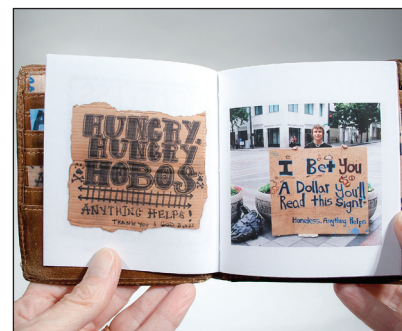 HUNGRY,
HUNGRY
HOBOS
ANYTHING HELPS!
THANK YOU & GOD BLESS
I Bet You
A Dollar You'll
Read this Sign!
Homeless. Anything Helps.